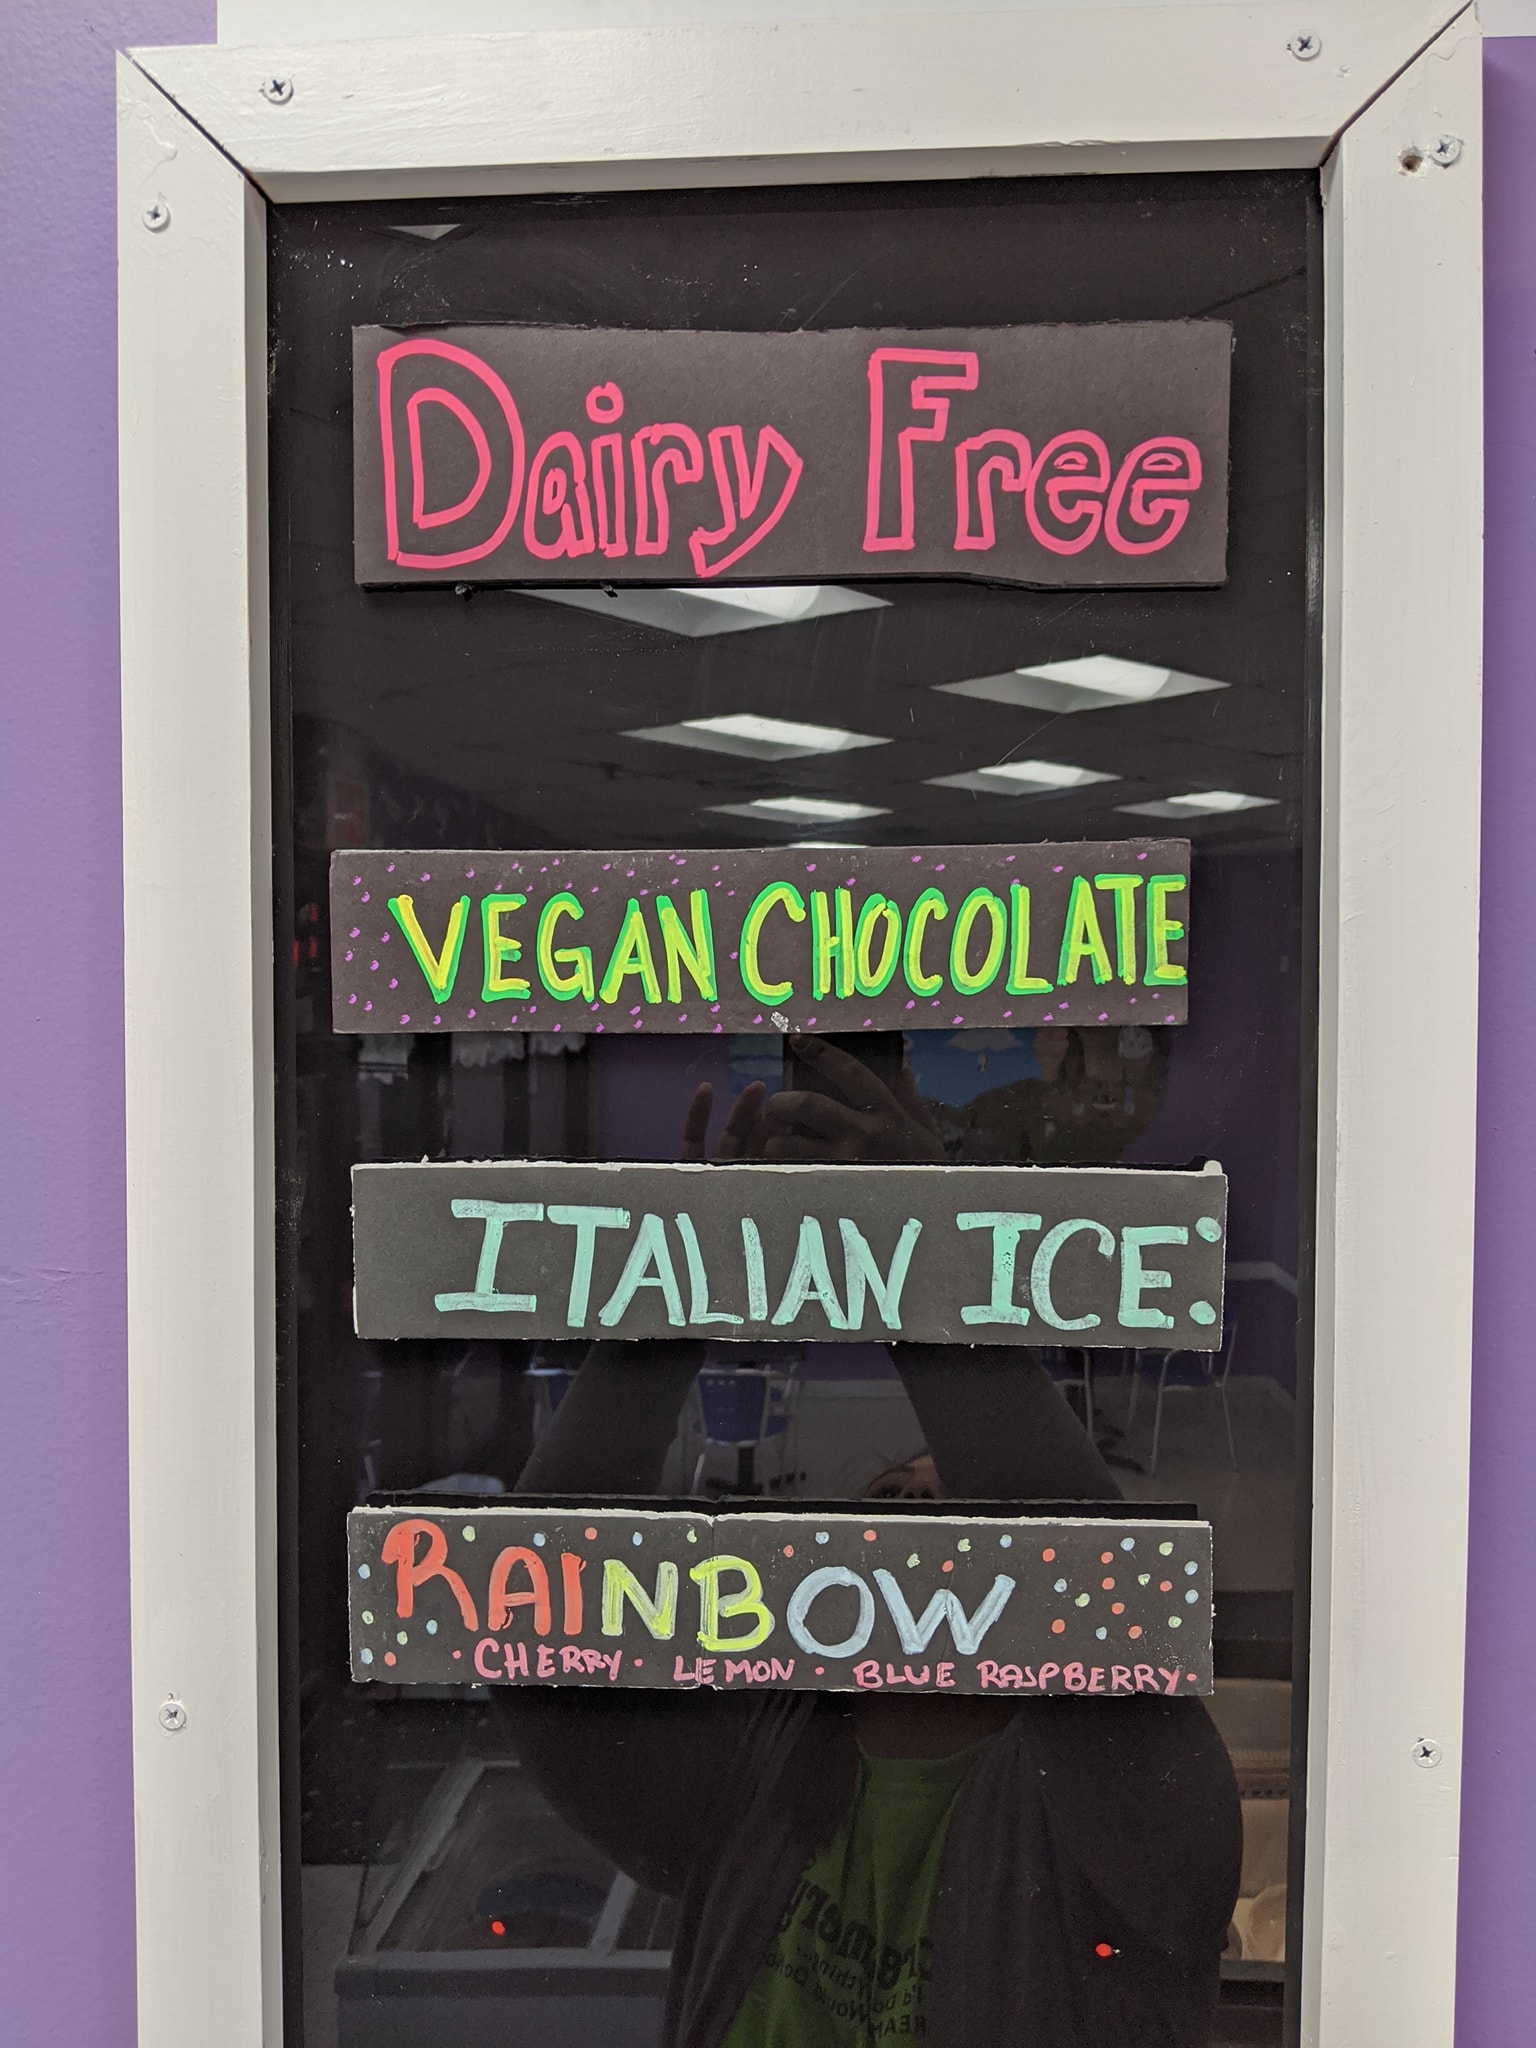 Dairy Free
VEGAN CHOCOLATE
ITALIAN ICE:
RAINBOW
· CHERRY · LEMON · BLUE RASPBERRY ·
Creamery